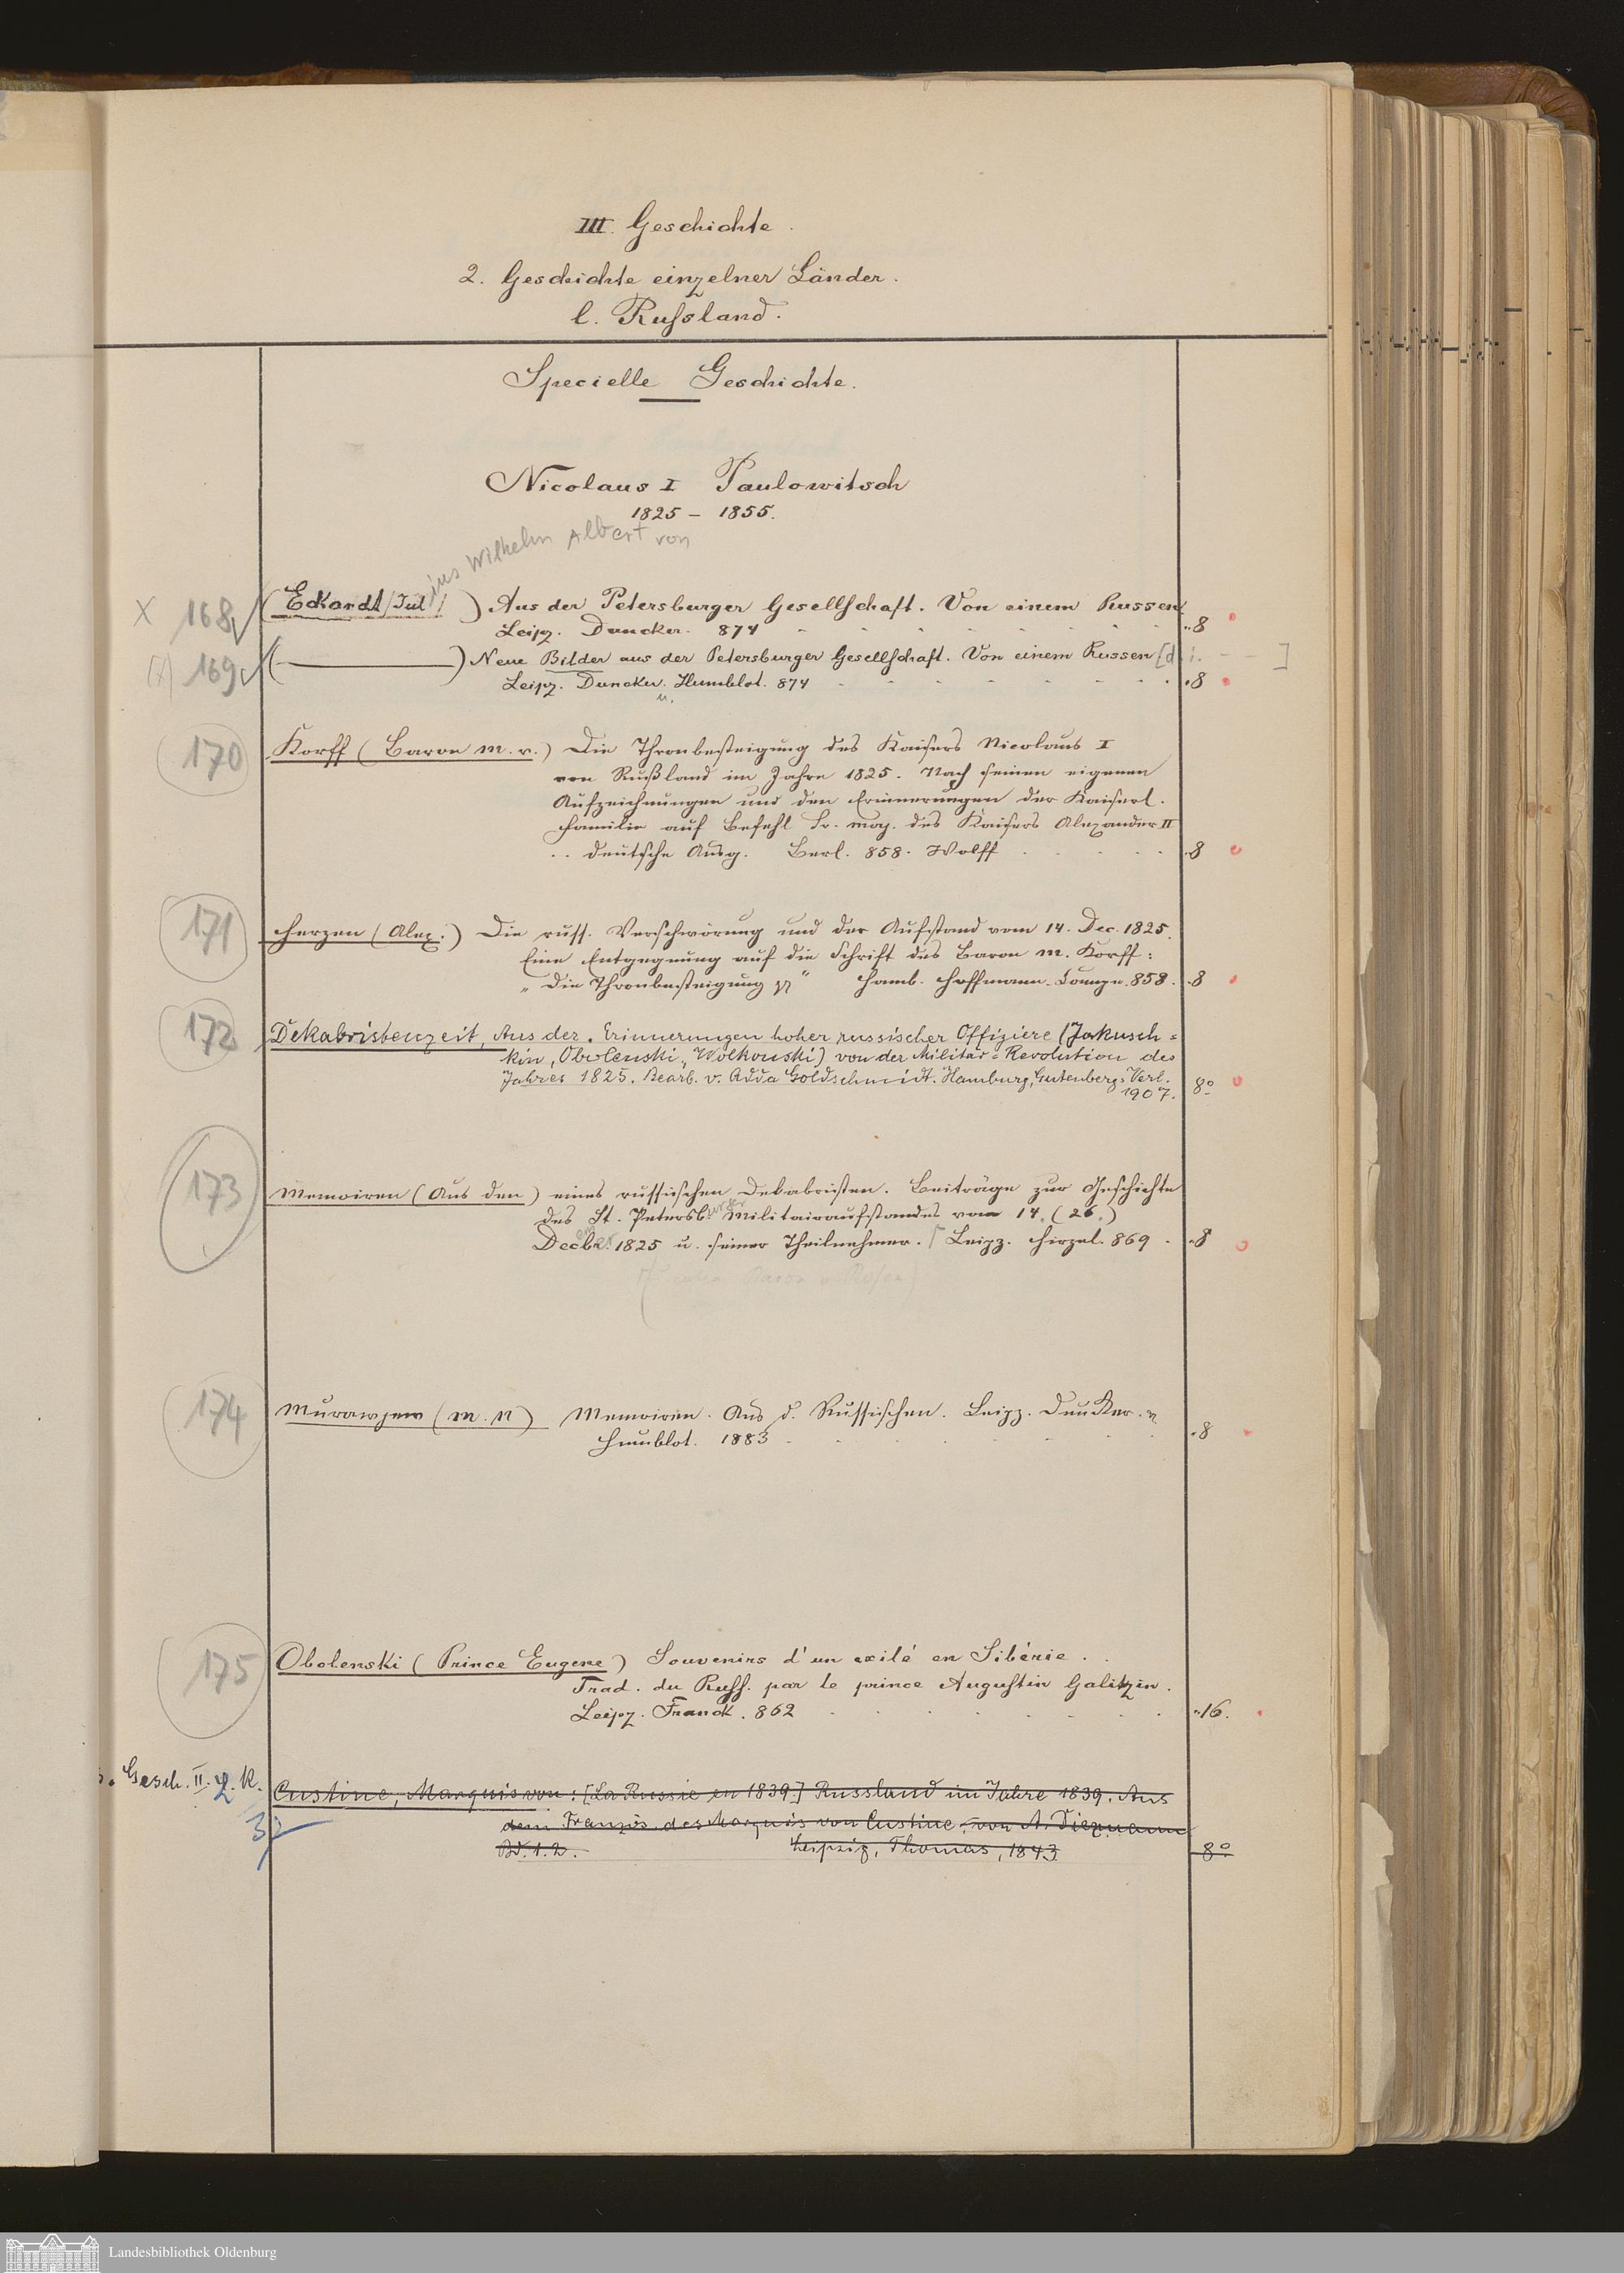 III. Geschichte.
2. Geschichte einzelner Länder.
l. Russland.
Specielle Geschichte.
Nicolaus I Paulowitsch
1825 – 1855.
ius Wilhelm Albert von
X 168 (Eckardt (Jul.)) Aus der Petersburger Gesellschaft. Von einem Russen
Leipz. Duncker. 874 8
(x) 169 (———) Neue Bilder aus der Petersburger Gesellschaft. Von einem Russen [d. i. – – ]
Leipz. Duncker u. Humblot. 874 8
170 Korff (Baron M. v.) Die Thronbesteigung des Kaisers Nicolaus I
von Rußland im Jahre 1825. Nach seinen eigenen
Aufzeichnungen und den Erinnerungen der Kaiserl.
Familie auf Befehl Sr. Maj. des Kaisers Alexander II
.. deutsche Ausg. Berl. 858. Wolff 8
171 Herzen (Alex.) Die russ. Verschwörung und der Aufstand vom 14. Dec. 1825.
Eine Entgegnung auf die Schrift des Baron M. Korff:
„Die Thronbesteigung“ Hamb. Hoffmann. Campe. 858. 8
172 Dekabristenzeit, Aus der. Erinnerungen hoher russischer Offiziere (Jakusch=
kin, Obolenski, Wolkonski) von der Militär=Revolution des
Jahres 1825. Bearb. v. Adda Goldschmidt. Hamburg, Gutenberg-Verl.
1907. 8°
173 Memoiren (Aus den) eines russischen Dekabristen. Beiträge zur Geschichte
des St. Petersburger Militairaufstandes vom 14. (26.)
Decbr. 1825 u. seiner Theilnehmer. Leipz. Hirzel. 869. 8
Baron v. Rosen)
174 Murawjew (M. N) Memoiren. Aus d. Russischen. Leipz. Duncker. u.
Humblot. 1883 8
175 Obolenski (Prince Eugene) Souvenirs d'un exilé en Sibérie.
Trad. du Russ. par le prince Augustin Galitzin.
Leipz. Franck. 862 16.
s. Gesch. II. 2. K. Custine, Marquis von: [La Russie en 1839.] Russland im Jahre 1839. Aus
dem Französ. des Marquis von Custine von A. Diezmann
Bd. 1. 2. Leipzig, Thomas, 1843 8°
Landesbibliothek Oldenburg